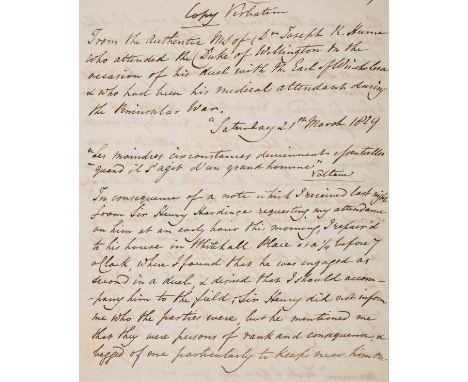 Copy Verbatim
From the Authentic MS of Dr Joseph R. Hume
who attended the Duke of Wellington on the
occasion of his duel with the Earl of Winchelsea
& who had been his medical attendant during
the Peninsular War.
"Saturday 21st March 1829
"Les moindres circonstances deviennent essentielles
"quand il s'agit d'un grand homme"
Voltaire
In consequence of a note which I received last night
from Sir Henry Hardinge requesting my attendance
on him at an early hour this morning, I repair'd
to his house in Whitehall Place at a 1/4 before 7
oClock, where I found that he was engaged as
second in a duel, & desired that I should accom-
pany him to the field; Sir Henry did not inform
me who the parties were, but he mentioned me
that they were persons of rank and consequence, &
begged of me particularly to keep near him on